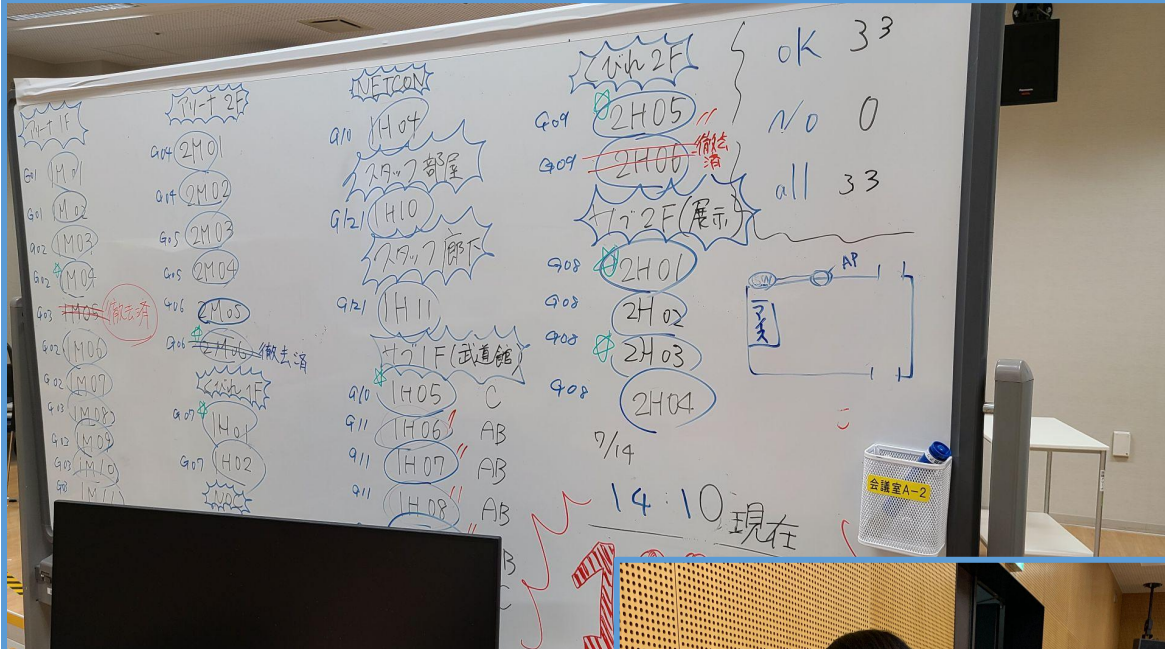 アリーナ1F
G01 1M01
G01 1M02
G02 1M03
G02 1M04
G03 1M05 徹去済
G02 1M06
G02 1M07
G03 1M08
G03 1M09
G03 1M10
アリーナ2F
G04 2M01
G04 2M02
G05 2M03
G05 2M04
G06 2M05
G06 2M06 徹去済
くびれ1F
G07 1H01
G07 1H02
NETCON
G10 1H04
スタッフ部屋
G121 1H10
スタッフ廊下
G121 1H11
サブ1F(武道館)
G10 1H05 C
G11 1H06 AB
G11 1H07 AB
G11 1H08 AB
くびれ2F
G09 2H05
G09 2H06 徹去済
サブ2F(展示)
G08 2H01
G08 2H02
G08 2H03
G08 2H04
7/14
14:10現在
OK 33
No 0
all 33
SW AP
会議室A-2